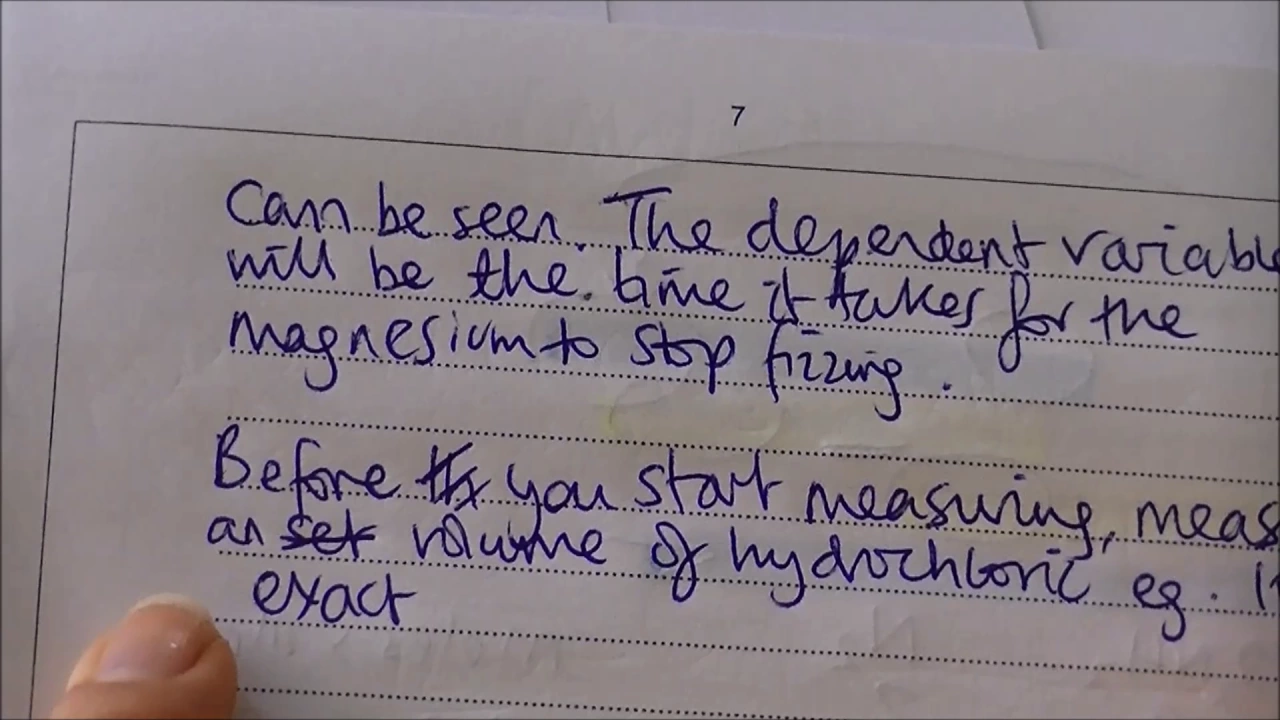 7
Can be seen. The dependent variable
will be the time it takes for the
magnesium to stop fizzing.
Before you start measuring, meas
an set volume of hydrochloric eg. 1
exact